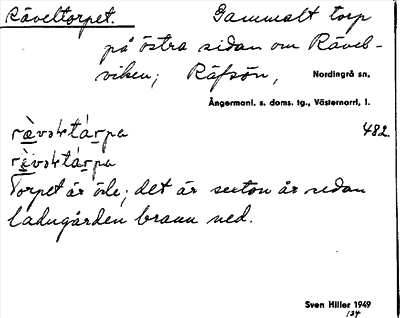 Räveltorpet. Gammalt torp
på östra sidan om Rävels-
viken; Räfsön, Nordingrå sn,
Ångermanl. s. doms. tg., Västernorrl. l.
482.
Torpet är öde; det är sexton år sedan
ladugården brann ned.
Sven Hiller 1949
134